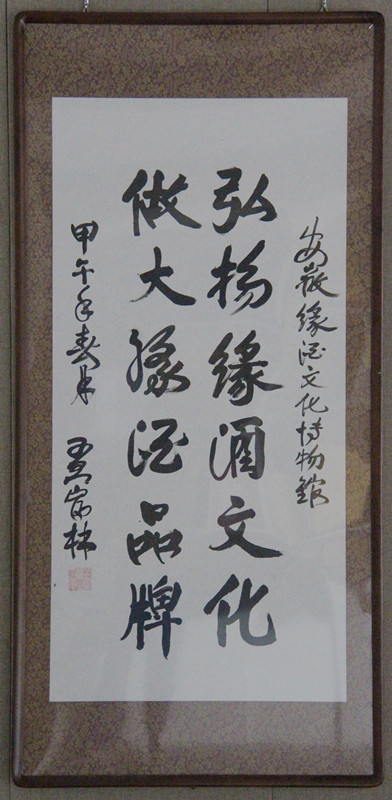 安徽缘酒文化博物館
弘扬缘酒文化
做大缘酒品牌
甲午年春月
林